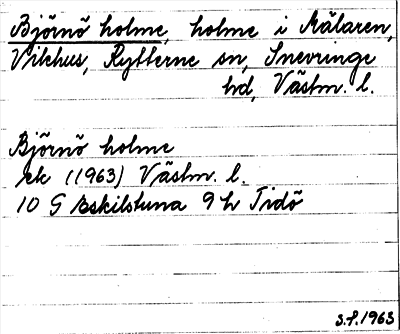 Björnö holme, holme i Mälaren,
Vilehus, Rytterne sn, Snevringe
hd, Västm. l.
Björnö holme
ek (1963) Västm. l.
10 G Eskilstuna 9 h Tidö
3.f.1963